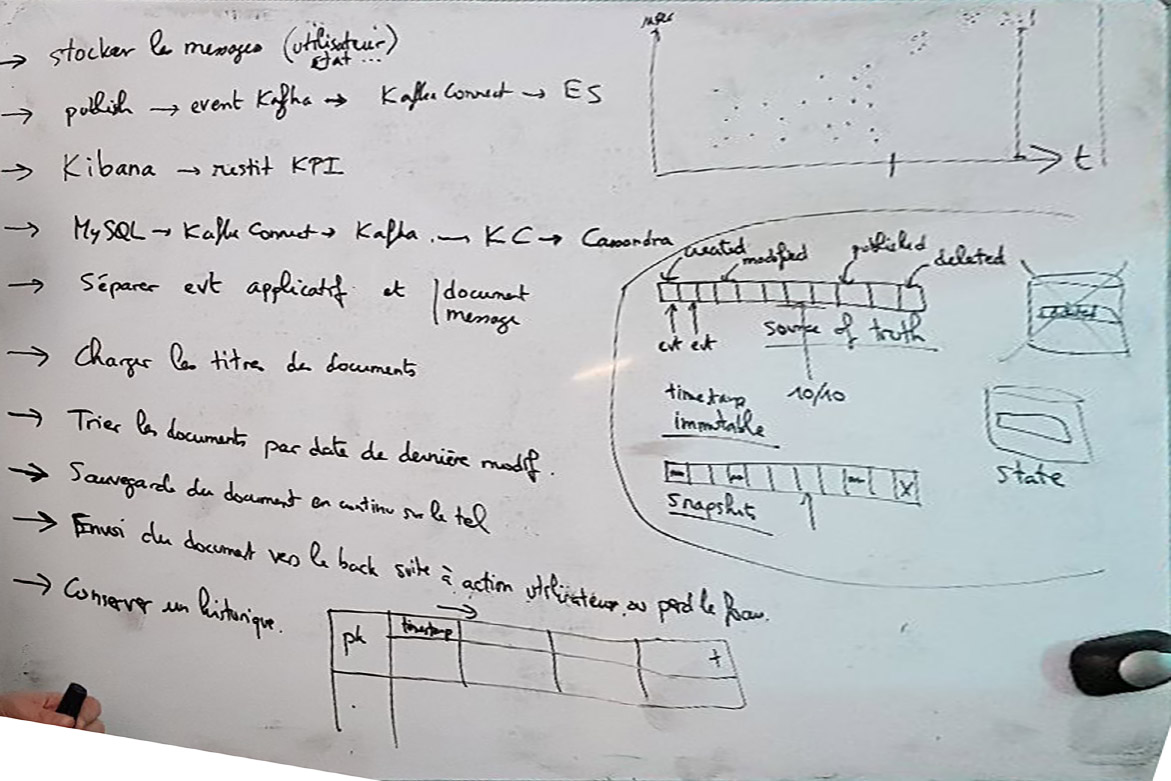 → stocker les messages (utilisateur)
état ...
→ publish → event Kafka → Kafka Connect → ES
→ Kibana → restit KPI
→ MySQL → Kafka Connect → Kafka → KC → Cassandra
→ Séparer evt applicatif et | document
message
→ Charger les titres des documents
→ Trier les documents par date de dernière modif.
→ Sauvegarde du document en continu sur le tel
→ Envoi du document vers le back suite à action utilisateur ou perd le focus.
→ Conserver un historique.
pk
timestamp
+
t
created
modified
published
deleted
evt evt
source of truth
10/10
timestamp
immutable
Snapshots
X
state